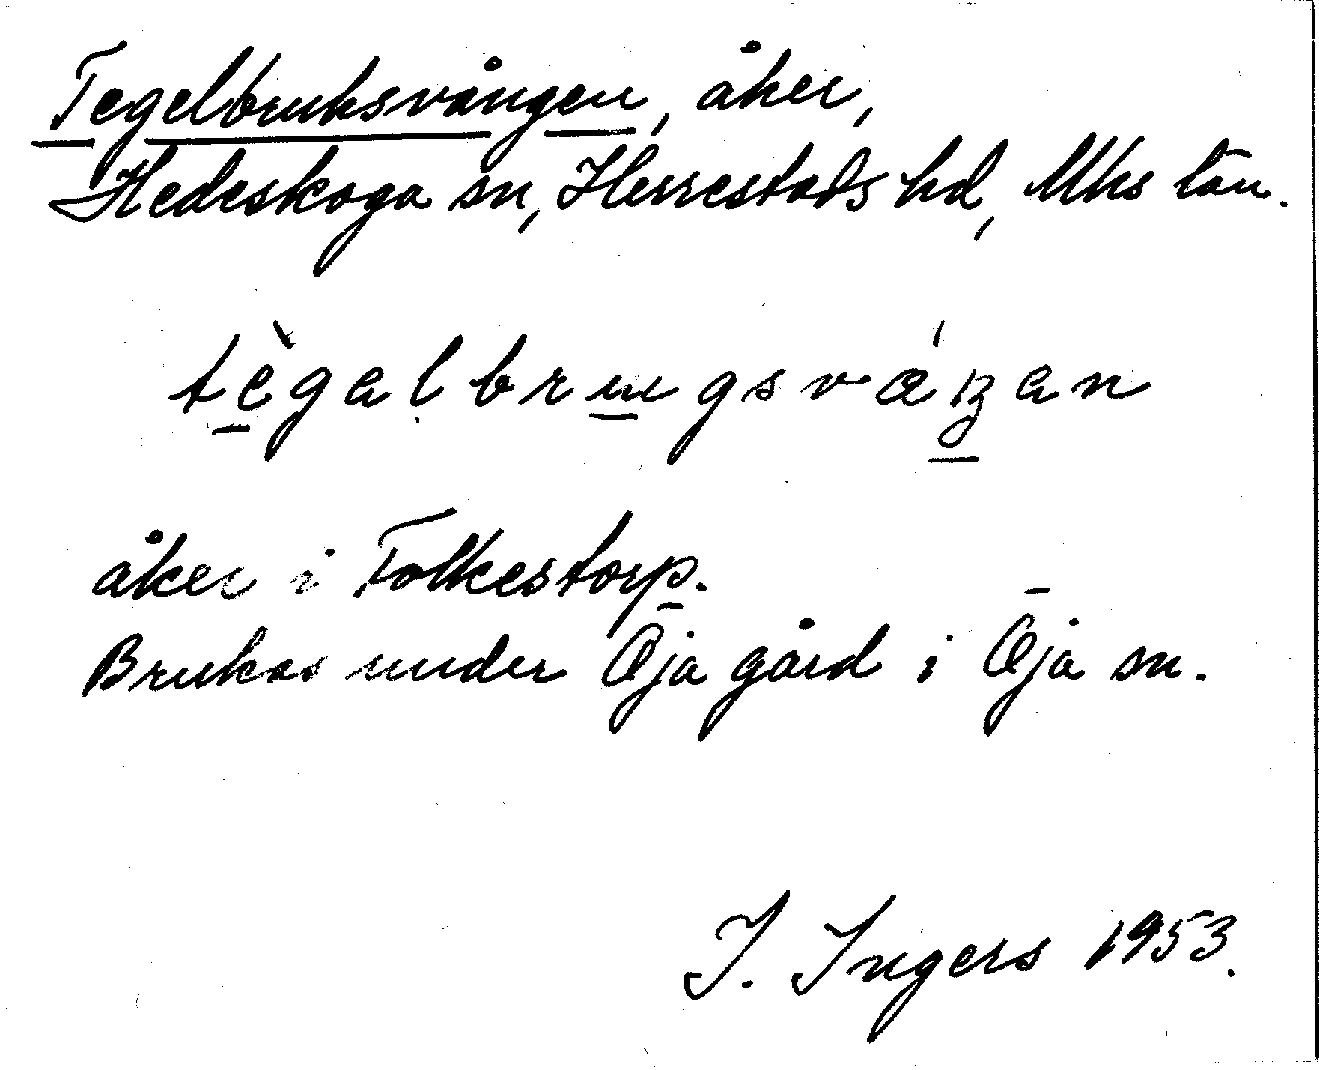 Tegelbruksvången, åker,
Hedeskoga sn, Herrestads hd, Mhs län.
tègalbrugsváŋan
åker i Folkestorp.
Brukas under Öja gård i Öja sn.
I. Ingers 1953.